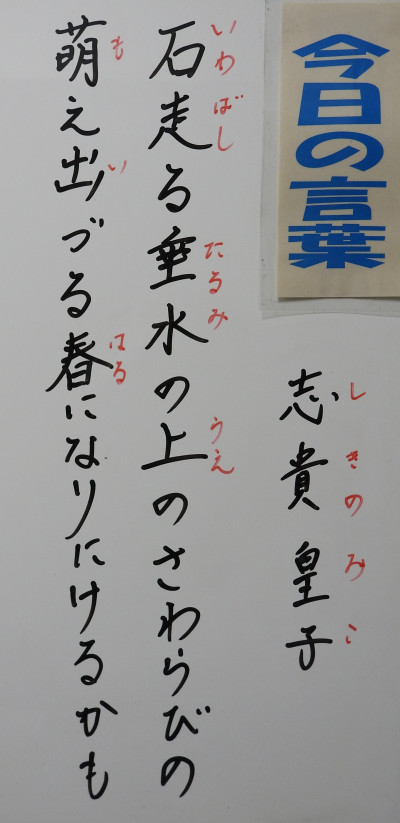 今日の言葉
志貴皇子
しきのみこ
石走る垂水の上のさわらびの
いわばし たるみ うえ
萌え出づる春になりにけるかも
も い はる